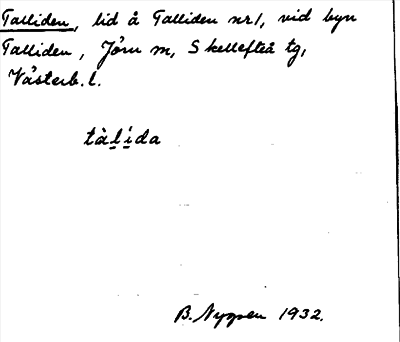 Talliden, lid å Talliden nr 1, vid byn
Talliden, Jörn sn, Skellefteå tg,
Västerb. l.
tàl̲i̲da
B. Nygren 1932.